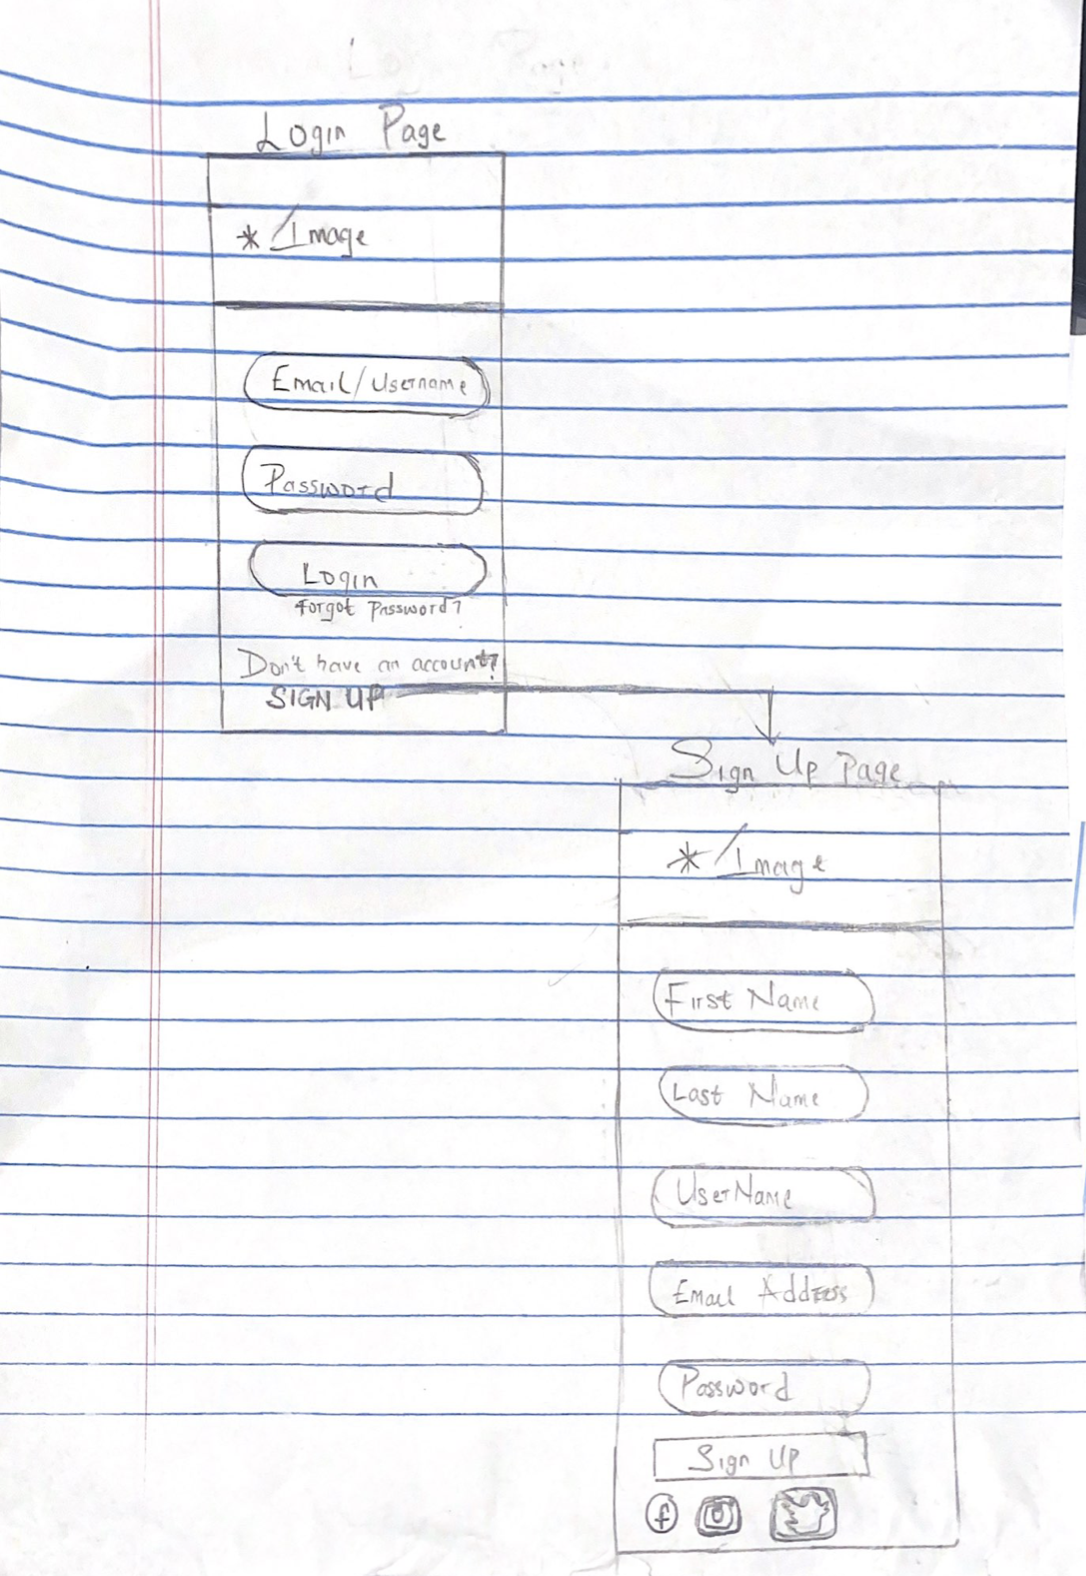 Login Page
* /Image
Email/Username
Password
Login
Forgot Password?
Don't have an account?
SIGN UP
Sign Up Page
* /Image
First Name
Last Name
UserName
Email Address
Password
Sign Up
f